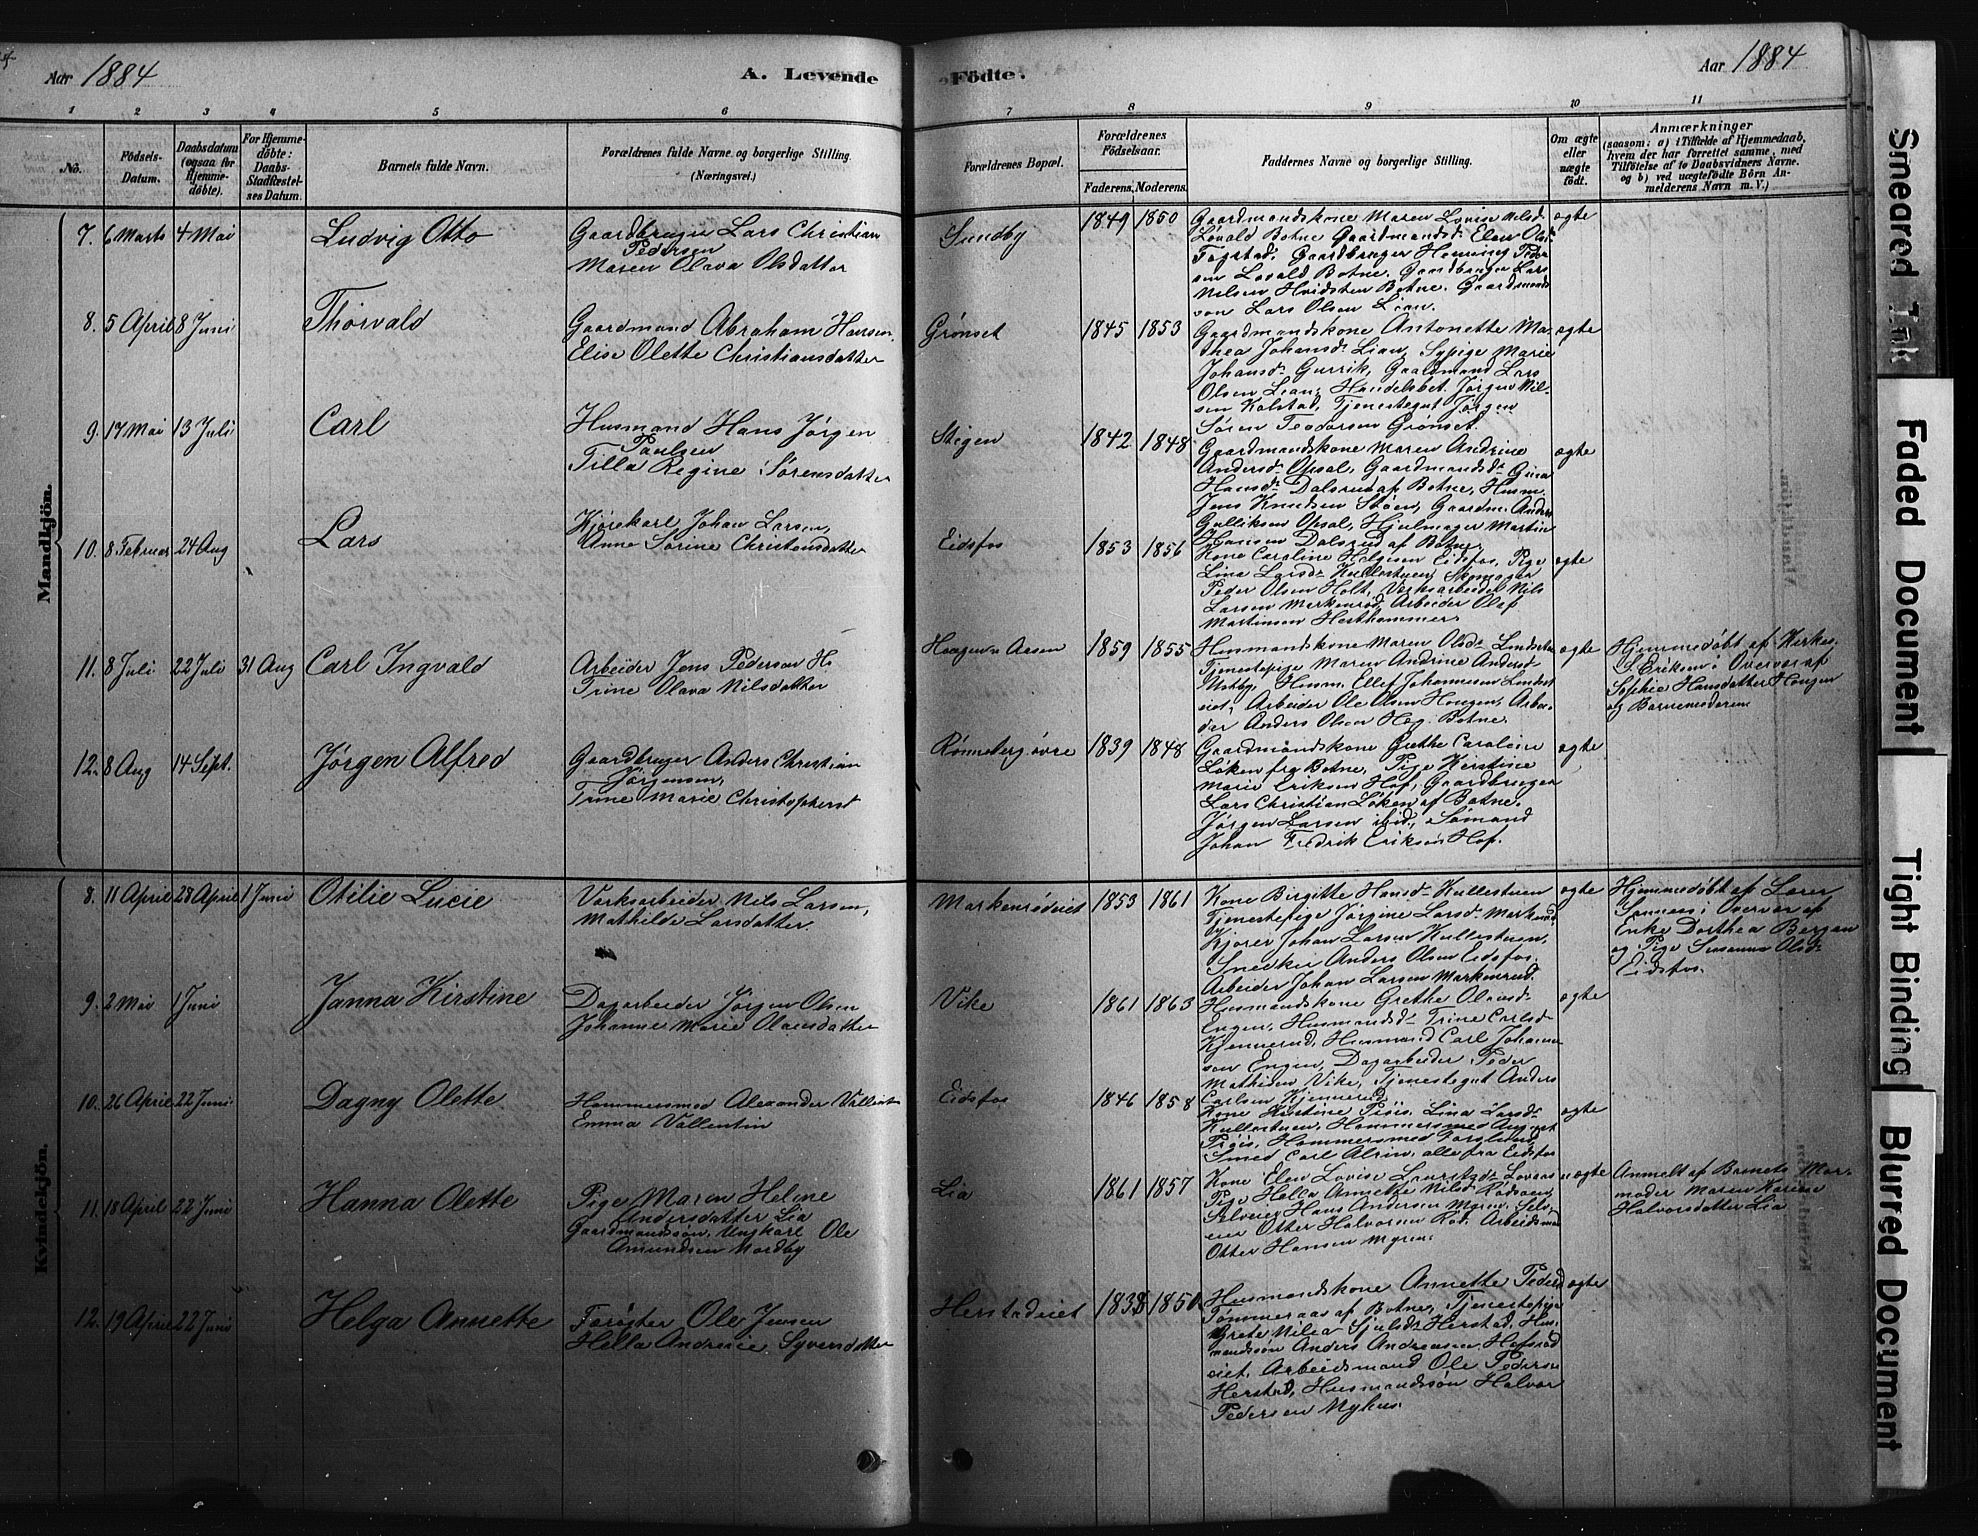 Aar 1884
A. Levende
Födte.
Aar 1884
1 2 3 4 5 6 7 8 9 10 11
No.
Födsels-
Datum.
Daabsdatum
(ogsaa for
Hjemme-
döbte).
For Hjemme-
döbte:
Daabs-
Stadfæstel-
ses Datum.
Barnets fulde Navn.
Forældrenes fulde Navne og borgerlige Stilling.
(Næringsvei.)
Forældrenes Bopæl.
Forældrenes
Födselsaar.
Faderens. Moderens.
Faddernes Navne og borgerlige Stilling.
Om ægte
eller
uægte
födt.
Anmærkninger
(saasom: a) i Tilfælde af Hjemmedaab,
hvem der har forrettet samme, med
Tilföielse af to Daabsvidners Navne.
og b) ved uægtefödte Börn An-
melderens Navn m. V.)
Mandkjön.
7. 6 Marts 4 Mai
Ludvig Otto
Gaardbruger Lars Christian
Pedersen
Maren Olava Olsdatter
Sundby
1849 1850
Gaardmandskone Maren Lovise Nilsd.
Løvald Botne Gaardmandsd. Elen Ols.
Fogstad, Gaardbruger Henning Peder
sen Løvald Botne, Gaardbruger Lars
Nilsen Hvidsten Botne. Gaardmands
søn Lars Olsen Lian.
ægte
8. 5 April 8 Juni
Thorvald
Gaardmand Abraham Hansen
Elise Olette Christiansdatter
Grønset
1845 1853
Gaardmandskone Antonette Ma-
thea Johansd. Lian, Sypige Marie
Johansd. Gurrik, Gaardmand Lars
Olsen Lian, Handelsbet. Jørgen Nil-
sen Kolstad, Tjenestegut Jørgen
Søren Teodorsen Grønset.
ægte
9. 17 Mai 13 Juli
Carl
Husmand Hans Jørgen
Paulsen
Tilla Regine Sørensdatter
Stigen
1842 1848
Gaardmandskone Maren Andrine
Andersd. Opsal, Gaardmandsd. Gina
Hansd. Dalsrud af Botne, Husm.
Jens Knudsen Støen, Gaardm. Anders
Gulliksen Opsal, Hjulmager Martin
Hansen Dalsrud af Botne.
ægte
10. 8 Februar 24 Aug
Lars
Kjørekarl Johan Larsen,
Anne Sørine Christensdatter
Eidsfos
1853 1856
Kone Caroline Helgesen Eidsfos, Pige
Lina Larsd. Kullestuen, Skomager
Peder Olsen Holt, Verksarbeider Nils
Larsen Markenrød, Arbeider Olaf
Martinsen Hesthammer.
ægte
11. 8 Juli 22 Juli 31 Aug
Carl Ingvald
Arbeider Jens Pedersen
Trine Olava Nilsdatter
1859 1855
Husmandskone Maren Olsd.
Tjenestepige Maren Andrine Andersd.
Husm. Ellef Johannesen
eiet, Arbeider Ole Olsen Hougen, Arbei-
der Anders Olsen Høg. Botne.
ægte
Hjemmedøbt af Kirkes.
S. Eriksen i Overvær af
Sophie Hansdatter Hougen
og Barnemoderen
12. 8 Aug 14 Sept.
Jørgen Alfred
Gaardbruger Anders Christian
Jørgensen,
Trine Marie Christophersd
Rønneberg øvre
1839 1848
Gaardmandskone Grethe Caroline
Løken fra Botne, Pige Kerstine
Marie Eriksen Hof, Gaardbruger
Lars Christian Løken af Botne.
Jørgen Larsen ibid, Sømand
Johan Fredrik Eriksen Hof.
ægte
Kvindekjön.
8. 11 April 28 April 1 Juni
Otilie Lucie
Værksarbeider Nils Larsen,
Mathilde Larsdatter.
Markenrødeiet
1853 1861
Kone Birgitte Hansd. Kullestuen
Tjenestepige Jørgine Larsd. Markenrød
Kjører Johan Larsen Kullestuen,
Snedker Anders Olsen Eidsfos.
Arbeider Johan Larsen Markenrud.
ægte
Hjemmedøbt af Lærer
Sannes i Overvær af
Enke Dorthea Bergan
og Pige Susanna Olsd.
Eidsfos.
9. 2 Mai 1 Juni
Janna Kirstine
Dagarbeider Jörgen Olsen
Johanne Marie Olausdatter
Vike
1861 1863
Husmandskone Grethe Olausd.
Engen, Husmandsd. Trine Carlsd.
Kjennerud, Husmand Carl Johan
sen Engen, Dagarbeider Peder
Mathisen Vike, Tjenestegut Anders
Carlsen Kjennerud
ægte
10. 26 April 22 Juni
Dagny Olette
Hammersmed Alexander Vallent
Emma Vallentin
Eidsfos
1846 1858
Kone Kirstine Piøis, Lina Larsd.
Kullestuen, Hammersmed August
Piøis, Hammersmed Forslund,
Smed Carl Alrin, alle fra Eidsfos
ægte
11. 18 April 22 Juni
Hanna Olette
Pige Maren Heline
Andersdatter Lia
Gaardmandssøn, Ungkarl Ole
Amundsen Nordby
Lia
1861 1857
Kone Elen Lovise
Pige Hella Annette Nilsd.
Selveier Hans Andersen Myren, Selv-
eier Otter Halvorsen Rød, Arbeidsma
Otter Hansen Myren.
uægte
Anmelt af Barnets Mor-
moder Maren Karine
Halvorsdatter Lia
12. 19 April 22 Juni
Helga Annette
Forøgter Ole Jensen
Hella Andreice Syversdatter
Herstadeiet
1838 1850
Husmandskone Annette Peders
Tømmeraas af Botne, Tjenestepige
Grete Milia Sjulsd. Herstad, Hus-
mandssøn Anders Andreassen Hofsrød
eiet, Arbeidsmand Ole Pedersen
Herstad, Husmandssøn Halvor
Pedersen Myhus.
ægte
Smeared Ink
Faded Document
Tight Binding
Blurred Document